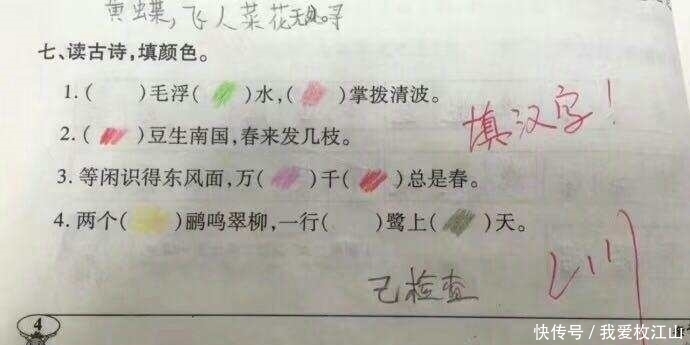 黄蝶，飞人菜花无处寻
七、读古诗，填颜色。
1.(　　)毛浮(　　)水，(　　)掌拨清波。
填汉字！
2.(　　)豆生南国，春来发几枝。
3. 等闲识得东风面，万(　　)千(　　)总是春。
4. 两个(　　)鹂鸣翠柳，一行(　　)鹭上(　　)天。
己检查
4
快传号／我爱枚江山